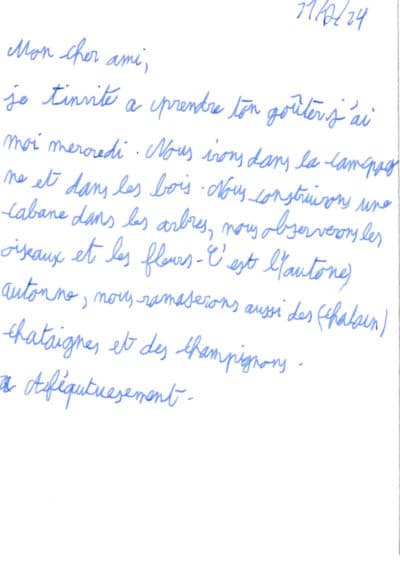 Mon cher ami,
je t'invite a prendre ton goûter j'ai
moi mercredi. Nous irons dans la campag
ne et dans les bois. Nous construirons une
cabane dans les arbres, nous observerons les
oiseaux et les fleurs. C'est l'(autone)
autonne, nous ramaserons aussi des (chatain)
chataignes et des champignons.
Aféqutuesement.